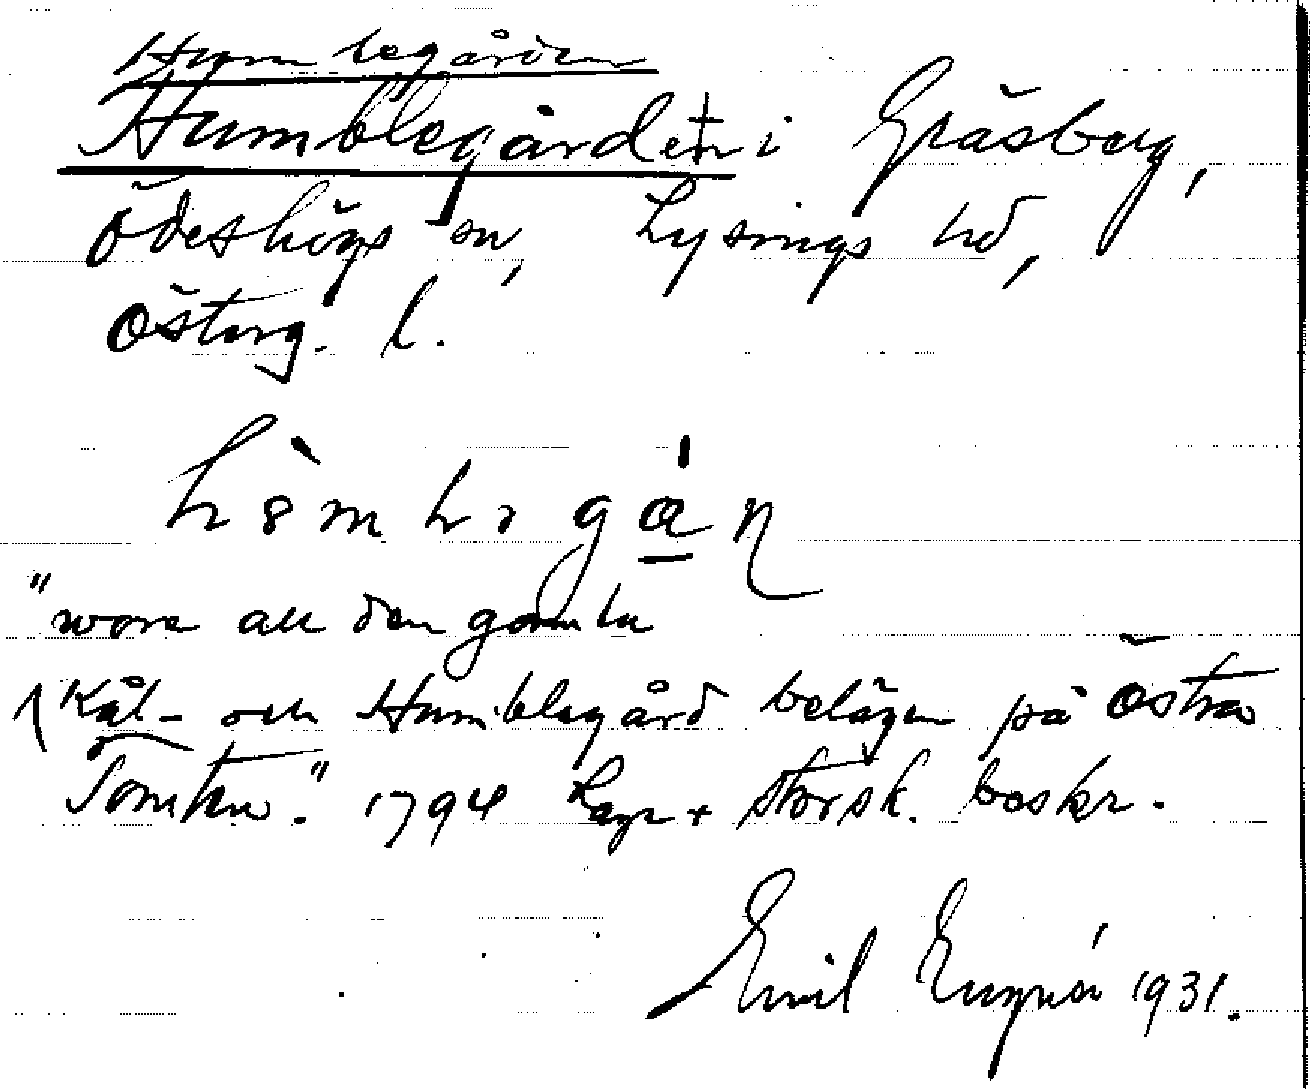 Humlegården
Humblegården i Gräsberg,
Ödeshögs sn, Lysings hd,
Österg. l.
"wore all den gamla
Kål- och Humblegård belägen på Östra
Tomten." 1794 Laga storsk. beskr.
Emil 1931.